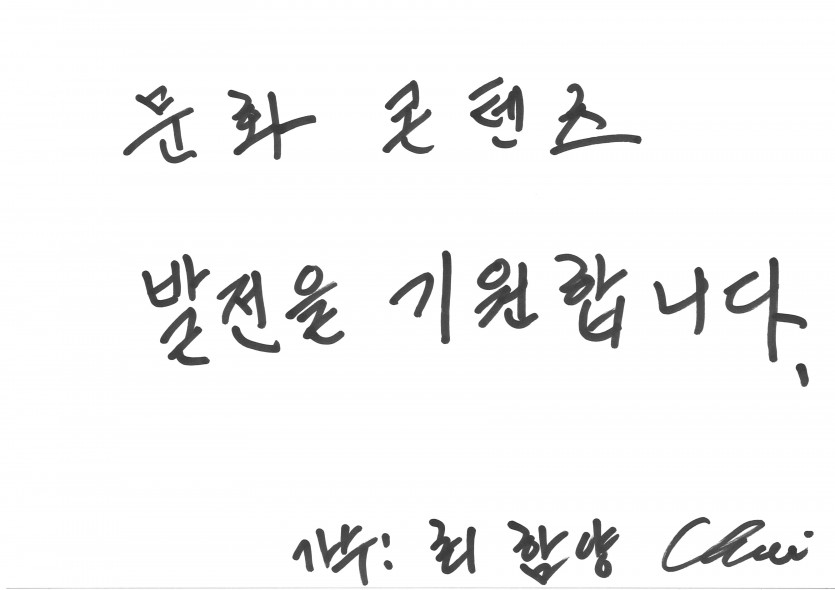 문화 콘텐츠
발전을 기원합니다.
가수: 최 함양 Choi